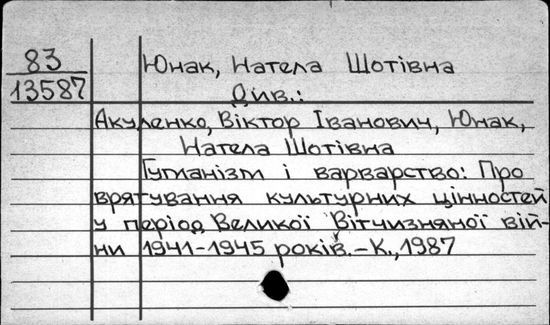 83
13587
Юнак, Натела Шотівна
Див.:
Акуленко, Віктор Іванович, Юнак,
Натела Шотівна
Гуманізм і варварство: Про
врятування культурних цінностей
у період Великої Вітчизняної вій-
ни 1941-1945 років.-К.,1987